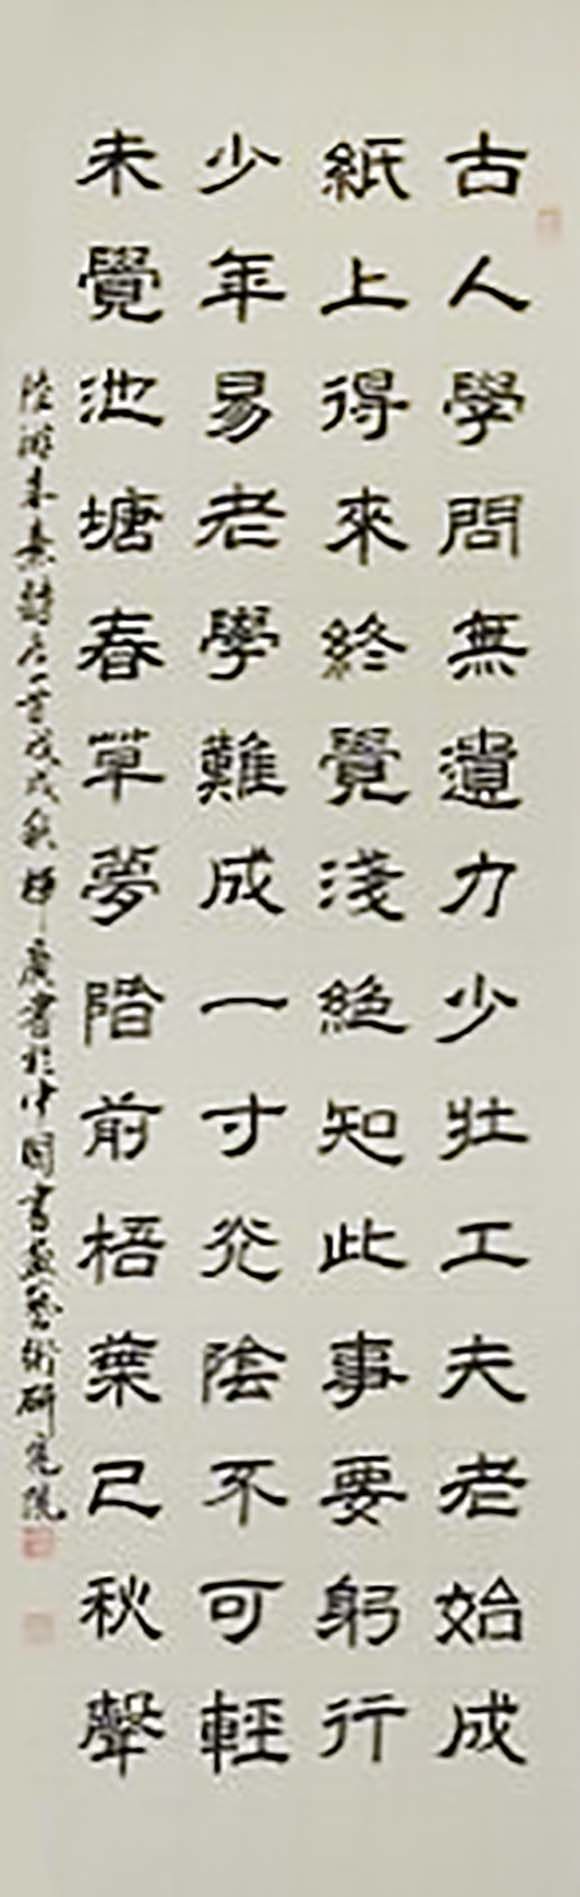 古人學問無遺力少壯工夫老始成
紙上得來終覺淺絕知此事要躬行
少年易老學難成一寸光陰不可輕
未覺池塘春草夢階前梧葉已秋聲
陸游朱熹詩各一首戊戌秋 廣書於中國書畫藝術研究院